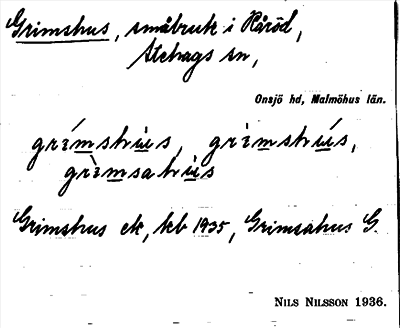 Grimshus, småbruk i Häröd,
Stehags sn,
Onsjö hd, Malmöhus län.
grímshùs, grìmshús,
grìmsahùs
Grimshus ek, kb 1935, Grimsahus G.
NILS NILSSON 1936.